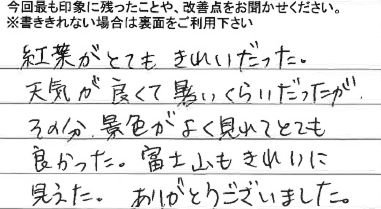 今回最も印象に残ったことや、改善点をお聞かせください。
※書ききれない場合は裏面をご利用下さい
紅葉がとてもきれいだった。
天気が良くて暑いくらいだったが、
その分、景色がよく見れてとても
良かった。富士山もきれいに
見えた。ありがとうございました。